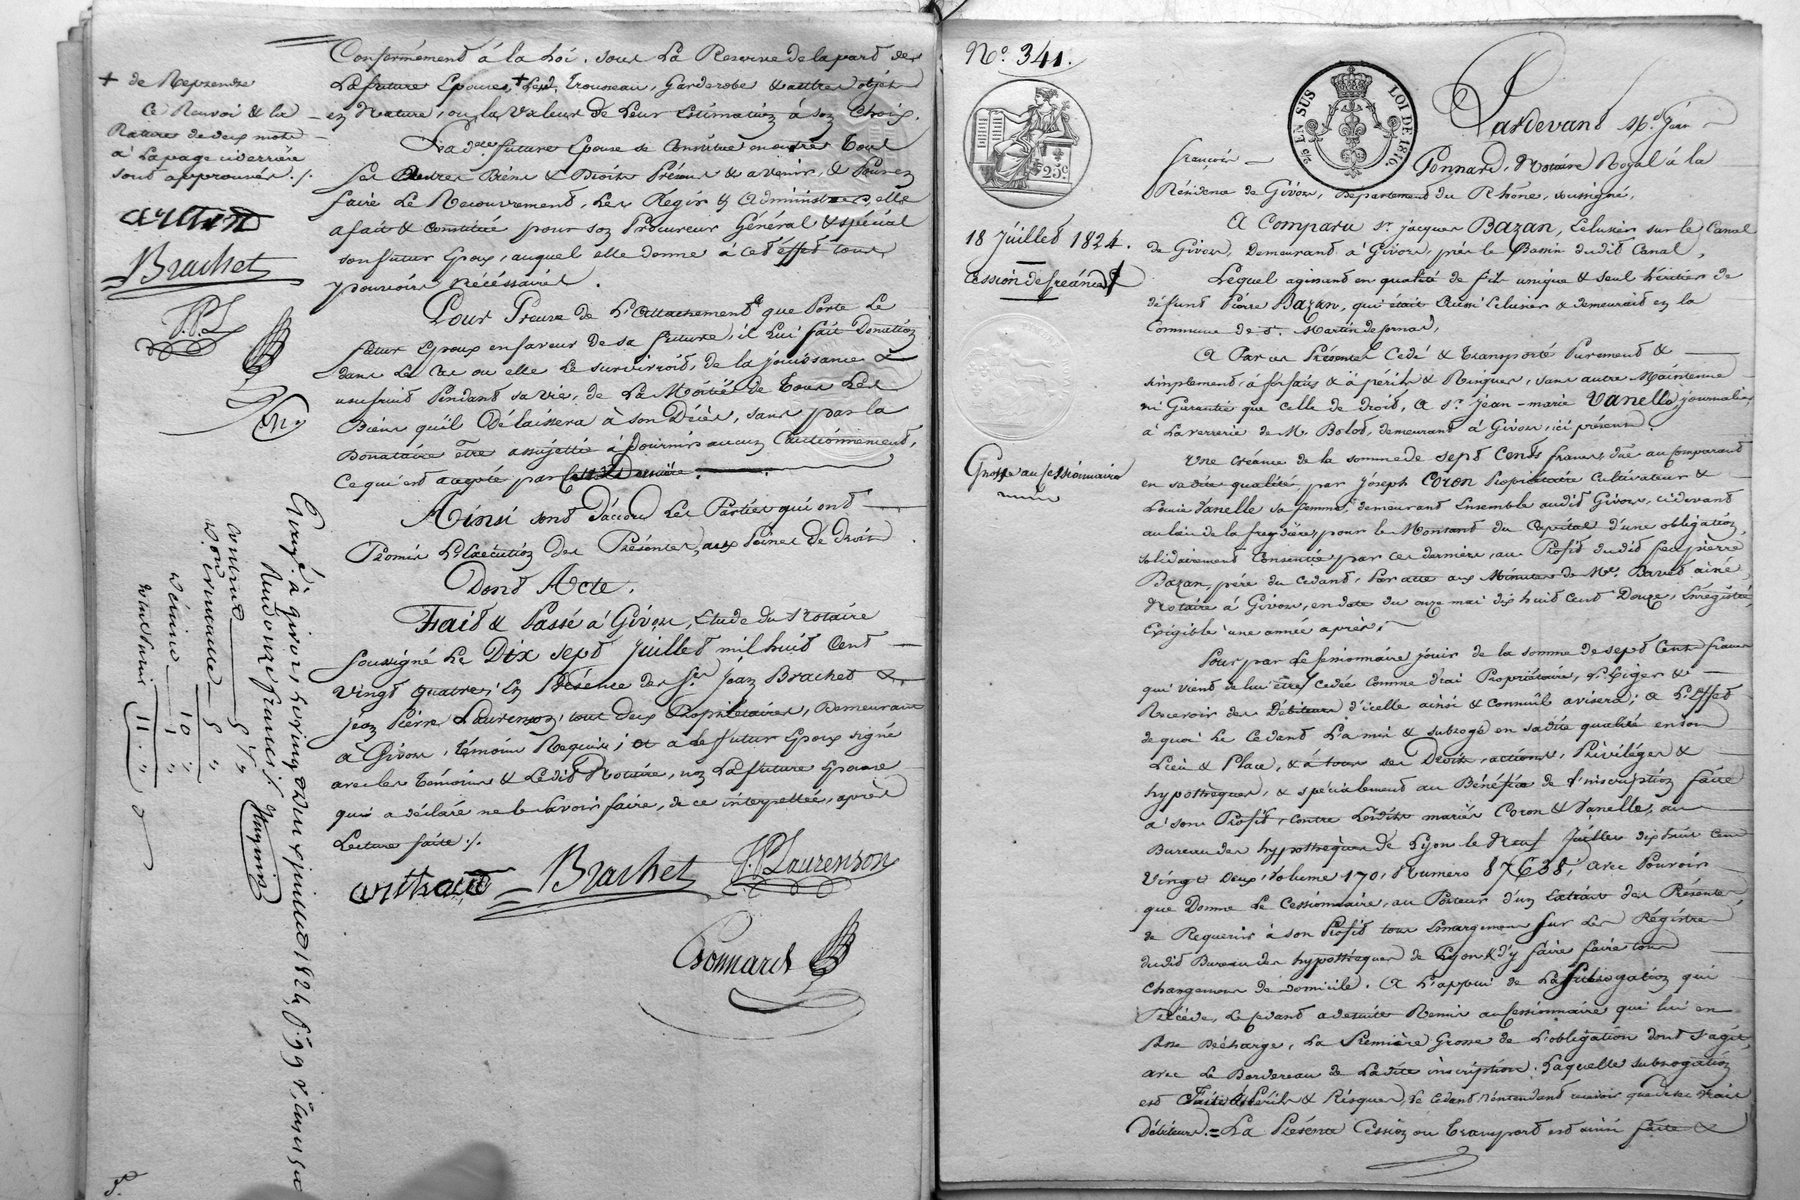 Conformément à la Loi, sous La Reserve de la part de
La future Epouse, + Led. trousseau, Garderobe & autres objets
en Nature, ou la Valeur de Leur Estimation à son Choix.
La dte future Epouse se Constitue en outre Tous
ses autres Biens & Droits Présens & avenir, & Pour en
faire Le Recouvrement, Les Régir & administrer elle
a fait & constitué pour son Procureur Général & spécial
son futur Epoux, auquel elle donne à cet effet tous
pouvoirs Nécéssaires.
Pour Preuve de L'attachement que Porte Le
futur Epoux en faveur de sa future, il lui fait Donation
dans Le Cas ou elle Le survivroit, de la jouissance &
usufruit Pendant sa vie, de La Moitié de Tous Les
Biens qu'il Délaissera à son Décès, sans par la
Donataire être assujettie à fournir aucun Cautionnement,
Ce qui est accepté par
Ainsi sont d'accord Les Parties qui ont
Promis L'Exécution des Présentes, aux Peines de Droit.
Dont Acte.
Fait & Passé à Givors, Etude du Notaire
soussigné Le Dix sept Juillet mil huit Cent
Vingt quatre; En Présence des Srs Jean Brachet &
Jean Pierre Laurenson, tous deux Propriétaires, Demeurant
à Givors, témoins Requis; et a Le futur Epoux signé
avec les témoins & Ledit Notaire, non La future Epouse
qui a déclaré ne le savoir faire, de ce interpellée, après
Lecture faite ./.
Brachet
J.P. Laurenson
Ponnard
+ de Reprendre
Ce Renvoi & la
Rature de deux mots
à La page ci derrière
sont approuvés ./.
Brachet
J.P.L
Enregé à Givors, Le vingt deux juillet 1824, fo
Reçu onze francs
cinq
dixième
N.o 341.
25c
18 Juillet 1824.
Cession de Créance
Grosse au Cessionnaire
EN SUS
LOI DE 1816
Pardevant Me Jean
françois Ponnard, Notaire Royal à la
Résidence de Givors, Département du Rhône, soussigné,
A Comparu Sr jacques Bazan, Eclusier sur le Canal
de Givors, demeurant à Givors, près le Bassin dudit Canal,
Lequel agissant en qualité de fils unique & seul héritier de
défunt Pierre Bazan, qui était aussi Eclusier & demeurait en la
Commune de St. Martin de Cornas,
A Par ces Présentes Cédé & transporté Purement &
simplement, à forfait & à périls & Risques, sans autre Maintenue
ni Garantie que celle de droit, à Sr Jean-marie Vanelle, journalier
à La verrerie de M. Bolot, demeurant à Givors, ici présent.
Une créance de la somme de sept Cents francs, dûe au Comparant
en sa dite qualité, par Joseph Coron Propriétaire Cultivateur &
Louise Vanelle sa femme, demeurant Ensemble audit Givors, cidevant
au lieu de la freydière, pour le Montant du Capital d'une obligation
solidairement Consentie par ces derniers, au Profit dudit feu pierre
Bazan, père du Cédant, Par acte aux Minutes de Me. Bavet ainé,
Notaire à Givors, en date du onze mai dix huit Cent Douze, Enrégistré,
Exigible une année après;
Pour par Le Cessionnaire jouir de la somme de sept Cents francs
qui vient de lui être cédée comme vrai Propriétaire, L'Exiger &
Recevoir des Débiteurs d'icelle ainsi & comm'il avisera; à L'Effet
de quoi Le Cédant L'a mis & subrogé en sa dite qualité en son
Lieu & Place, & à tous ses Droits, actions, Privilèges &
hypothèques, & spécialement au Bénéfice de L'inscription faite
à son Profit, contre Lesdits mariés Coron & Vanelle, au
Bureau des hypothèques de Lyon le Neuf Juillet dix huit Cent
Vingt Deux, Volume 170, Numéro 87638, avec Pouvoir
que Donne Le Cessionnaire, au Porteur d'un Extrait des Présentes
de Requerir à son Profit tous Emargemens sur Les Régistres
dudit Bureau des hypothèques de Lyon & d'y faire faire tous
changemens de domicile. A L'appui de La subrogation qui
Précède, Le Cédant a desuite Remis au Cessionnaire qui lui en
Passe Décharge, La Première Grosse de L'obligation dont s'agit,
avec Le Bordereau de La dite inscription. Laquelle subrogation
est Faite à Périls & Risques, Le Cédant n'entendant
Débiteurs. = La Présente Cession ou transport est ainsi faite &